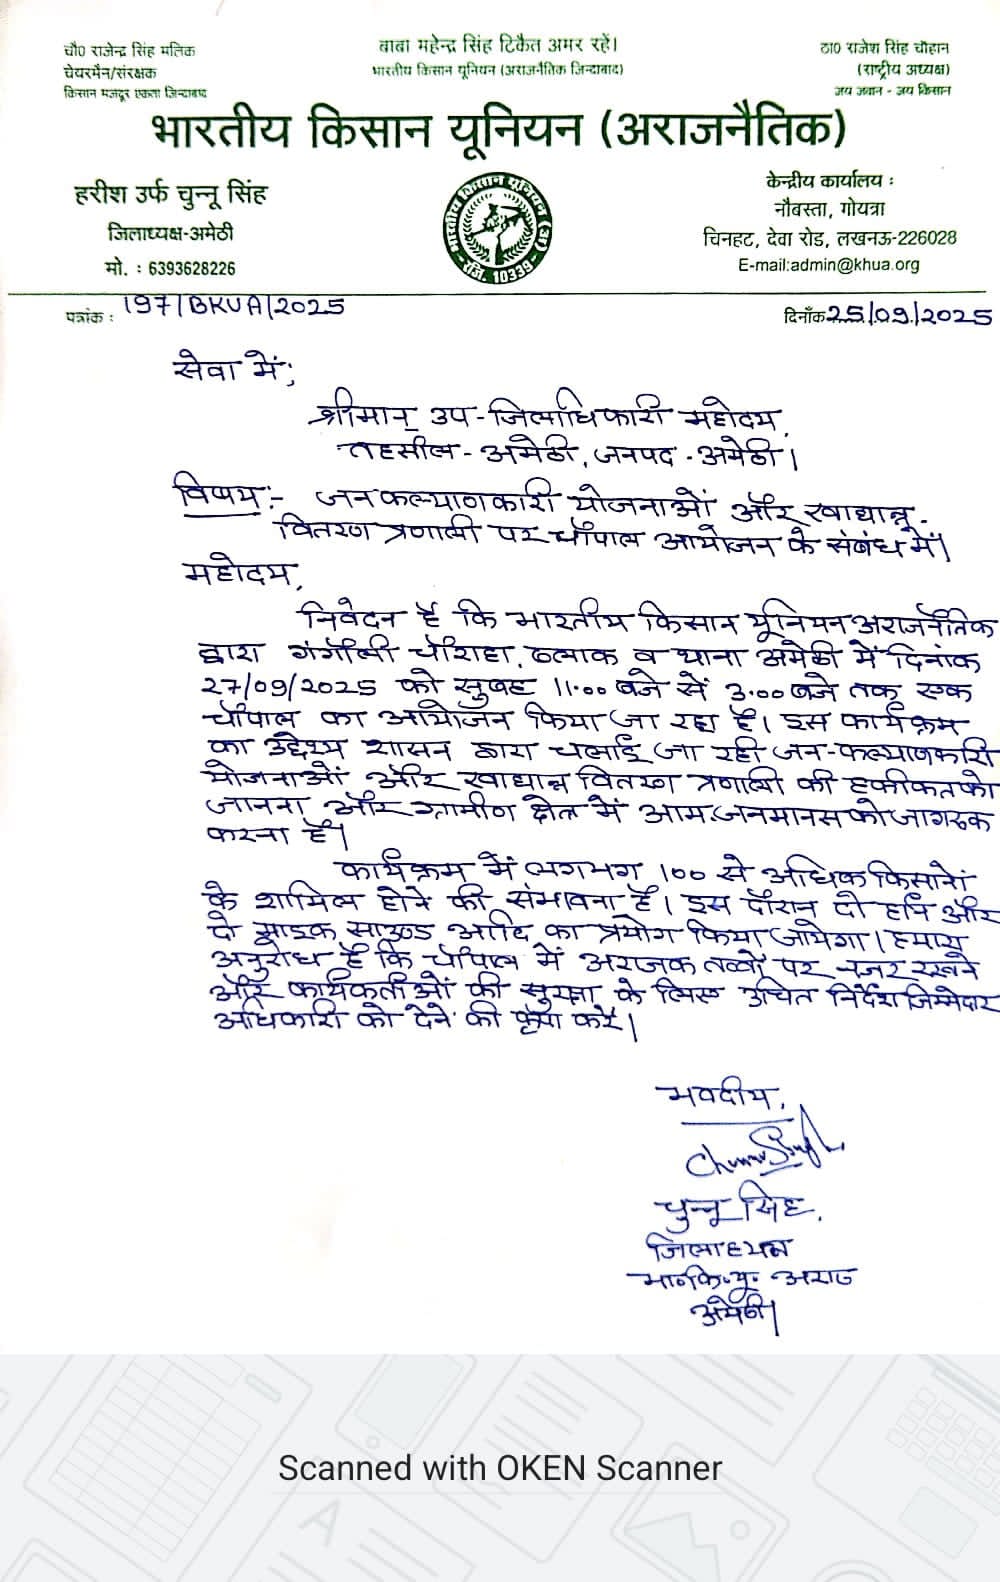 चौ0 राजेन्द्र सिंह मलिक
चेयरमैन/संरक्षक
किसान मजदूर एकता जिन्दाबाद
बाबा महेन्द्र सिंह टिकैत अमर रहें।
भारतीय किसान यूनियन (अराजनैतिक जिन्दाबाद)
ठा0 राजेश सिंह चौहान
(राष्ट्रीय अध्यक्ष)
जय जवान - जय किसान
भारतीय किसान यूनियन (अराजनैतिक)
हरीश उर्फ चुन्नू सिंह
जिलाध्यक्ष-अमेठी
मो. : 6393628226
भारतीय किसान यूनियन (अ)
रजि. 10339
केन्द्रीय कार्यालय :
नौबस्ता, गोयत्रा
चिनहट, देवा रोड, लखनऊ-226028
E-mail:admin@khua.org
पत्रांक : 197/BKUA/2025
दिनाँक 25/09/2025
सेवा में;
श्रीमान् उप-जिलाधिकारी महोदय,
तहसील - अमेठी, जनपद - अमेठी।
विषय:- जनकल्याणकारी योजनाओं और खाद्यान्न
वितरण प्रणाली पर चौपाल आयोजन के संबंध में।
महोदय,
निवेदन है कि भारतीय किसान यूनियन अराजनैतिक
द्वारा गंगौली चौराहा, ब्लाक व थाना अमेठी में दिनांक
27/09/2025 को सुबह 11:00 बजे से 3:00 बजे तक एक
चौपाल का आयोजन किया जा रहा है। इस कार्यक्रम
का उद्देश्य शासन द्वारा चलाई जा रही जन-कल्याणकारी
योजनाओं और खाद्यान्न वितरण प्रणाली की हकीकत को
जानना और ग्रामीण क्षेत्र में आम जनमानस को जागरूक
करना है।
कार्यक्रम में लगभग 100 से अधिक किसानों
के शामिल होने की संभावना है। इस दौरान दो हार्न और
दो माइक साउण्ड आदि का प्रयोग किया जायेगा। हमारा
अनुरोध है कि चौपाल में अराजक तत्वों पर नजर रखने
और कार्यकर्ताओं की सुरक्षा के लिए उचित निर्देश जिम्मेदार
अधिकारी को देने की कृपा करें।
भवदीय,
Chunnu Singh
चुन्नू सिंह,
जिलाध्यक्ष
भा॰कि॰यू॰ अराज
अमेठी।
Scanned with OKEN Scanner